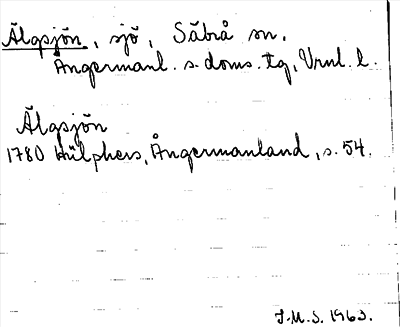 Älgsjön, sjö, Säbrå sn,
Ångermanl. s. doms. tg, Vrnl. l.
Älgsjön
1780 Hülphers, Ångermanland, s. 54.
J.M.S. 1963.